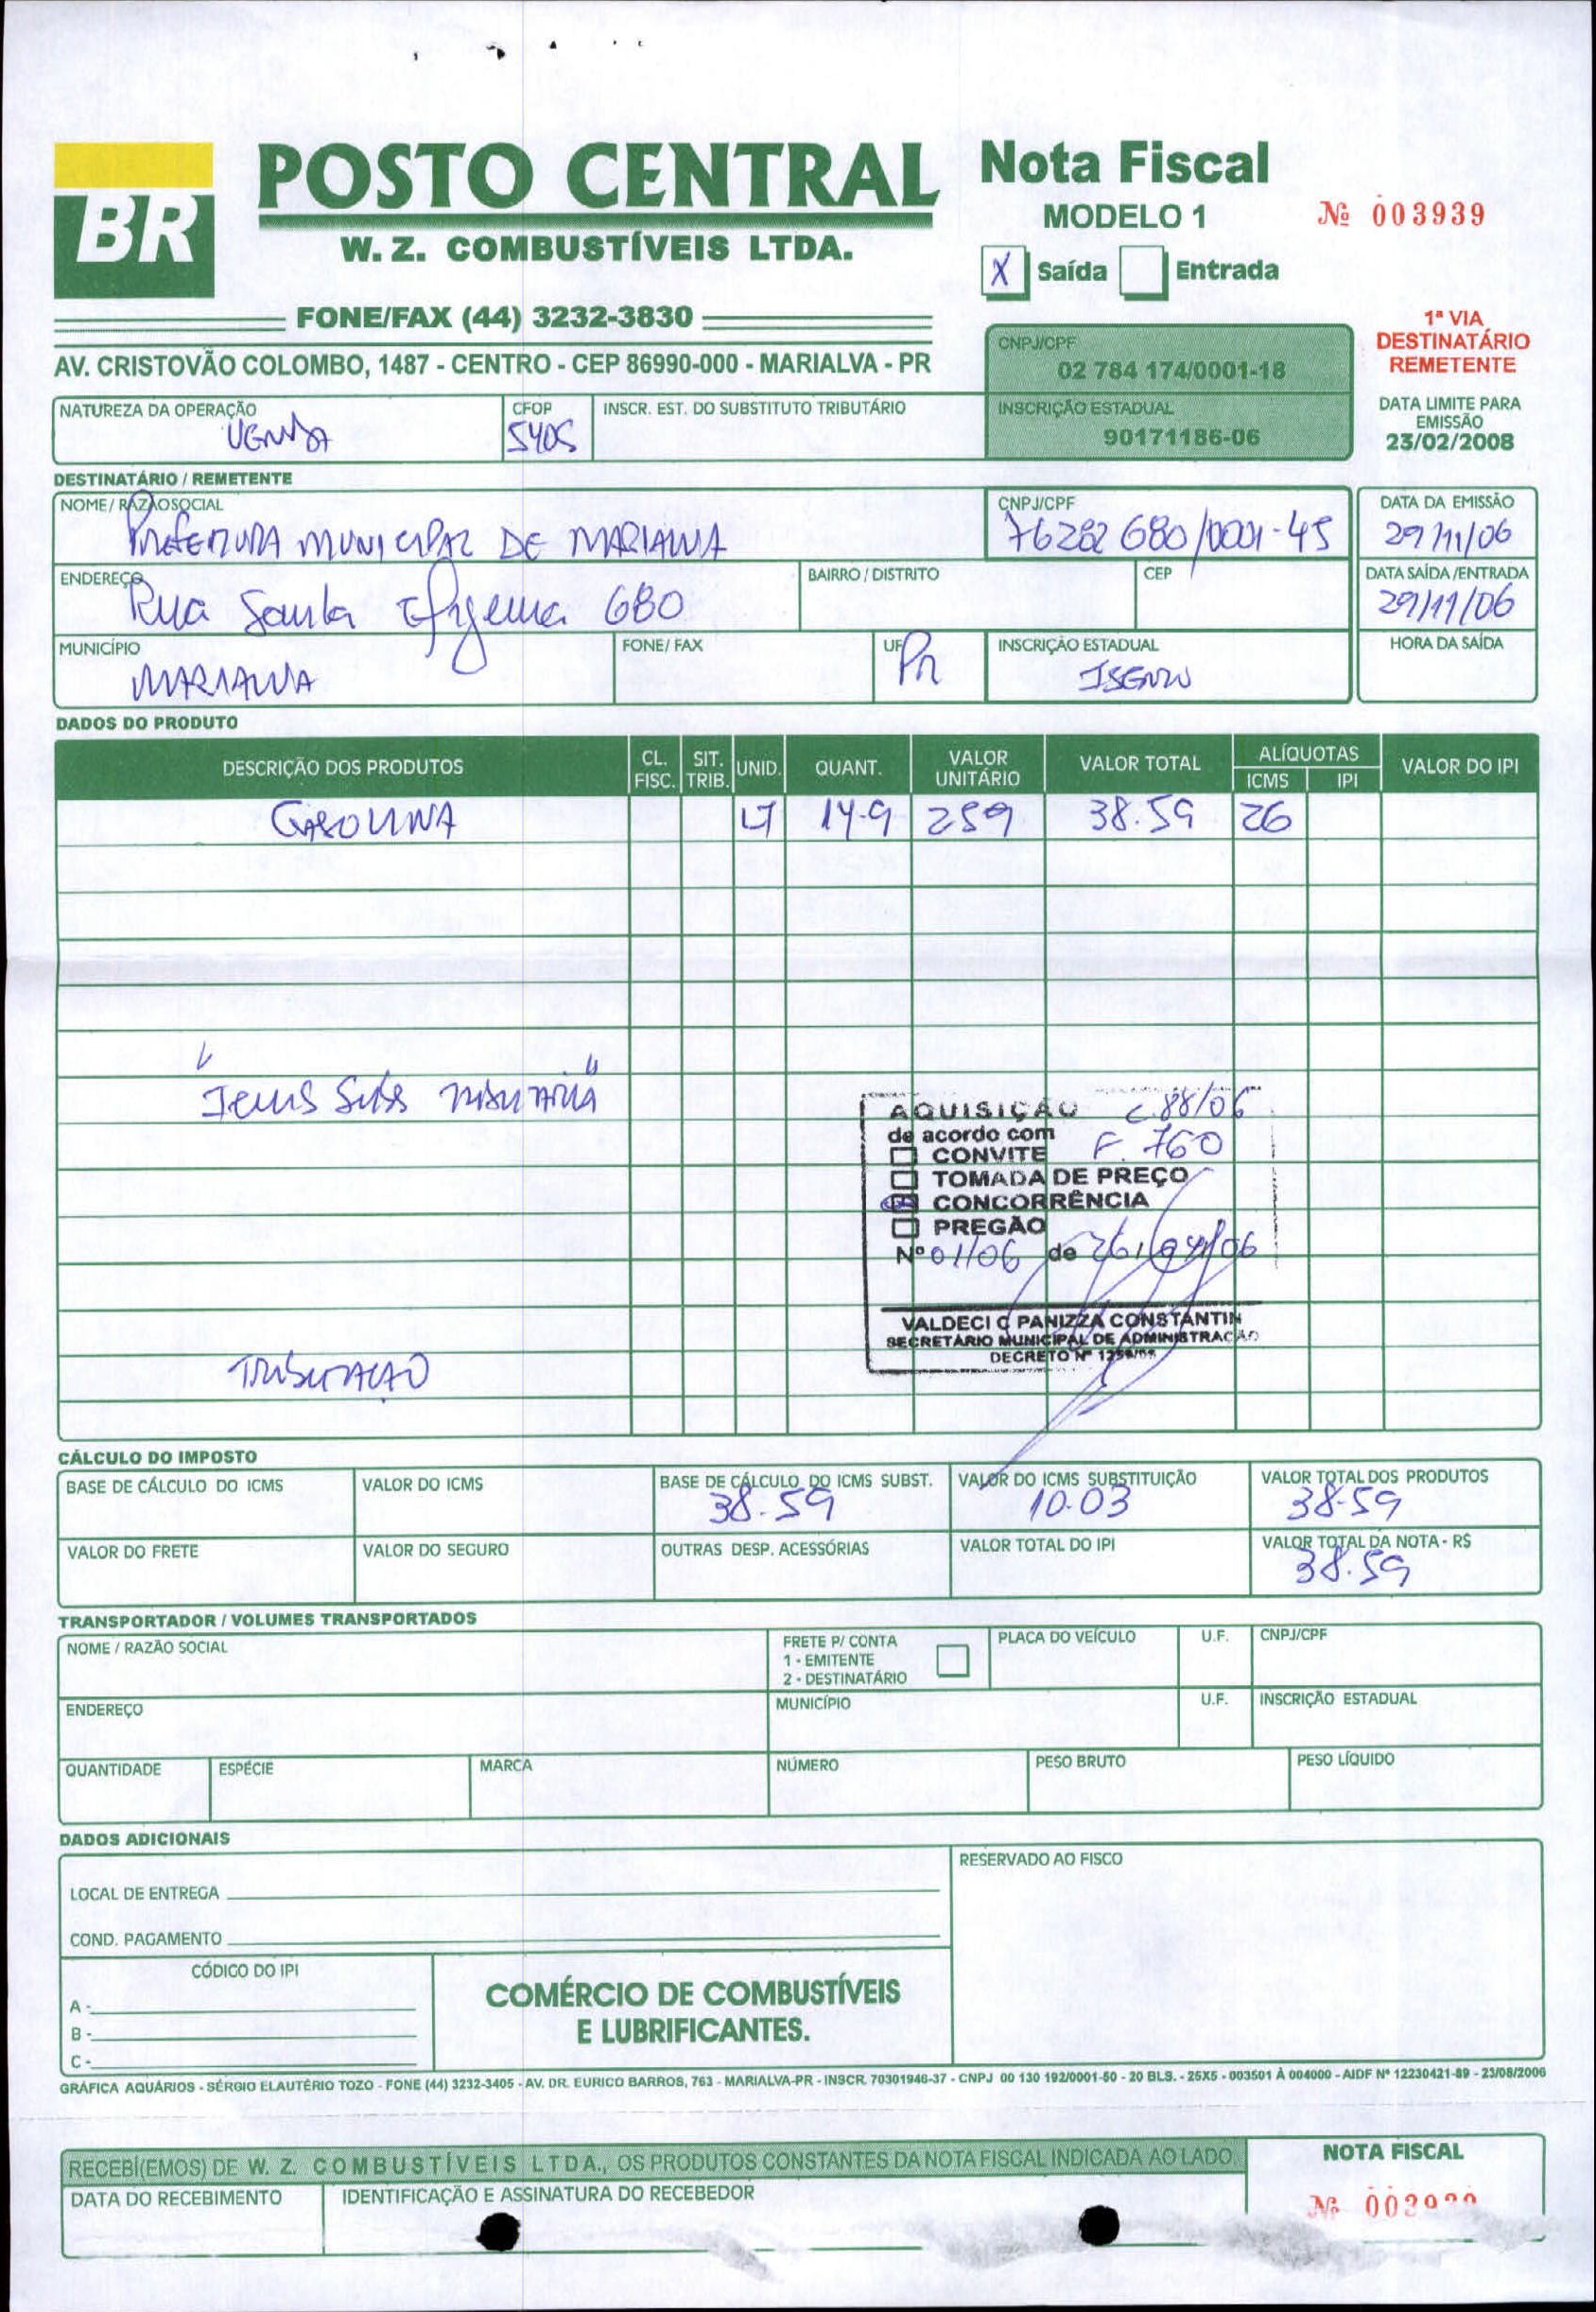 BR
POSTO CENTRAL
W. Z. COMBUSTÍVEIS LTDA.
FONE/FAX (44) 3232-3830
AV. CRISTOVÃO COLOMBO, 1487 - CENTRO - CEP 86990-000 - MARIALVA - PR
Nota Fiscal
MODELO 1
Nº 003939
X Saída Entrada
1ª VIA
DESTINATÁRIO
REMETENTE
CNPJ/CPF
02 784 174/0001-18
INSCRIÇÃO ESTADUAL
90171186-06
DATA LIMITE PARA
EMISSÃO
23/02/2008
NATUREZA DA OPERAÇÃO
VENDA
CFOP
5405
INSCR. EST. DO SUBSTITUTO TRIBUTÁRIO
DESTINATÁRIO / REMETENTE
NOME / RAZÃO SOCIAL
PREFEITURA MUNICIPAL DE MARIALVA
CNPJ/CPF
76282 680/0001-45
DATA DA EMISSÃO
29/11/06
ENDEREÇO
Rua Santa Efigenia 680
BAIRRO / DISTRITO
CEP
DATA SAÍDA/ENTRADA
29/11/06
MUNICÍPIO
MARIALVA
FONE/ FAX
UF
PR
INSCRIÇÃO ESTADUAL
ISENTO
HORA DA SAÍDA
DADOS DO PRODUTO
DESCRIÇÃO DOS PRODUTOS CL. FISC. SIT. TRIB. UNID. QUANT. VALOR UNITÁRIO VALOR TOTAL ALÍQUOTAS ICMS IPI VALOR DO IPI
GASOLINA LT 14-9 259 38.59 26
" "
TRIBUTAÇÃO
AQUISIÇÃO C.88/06
de acordo com F. 760
CONVITE
TOMADA DE PREÇO
CONCORRÊNCIA
PREGÃO
Nº 01/06 de
VALDECI C PANIZZA CONSTANTIN
SECRETÁRIO MUNICIPAL DE ADMINISTRAÇÃO
DECRETO Nº
CÁLCULO DO IMPOSTO
BASE DE CÁLCULO DO ICMS
VALOR DO ICMS
BASE DE CÁLCULO DO ICMS SUBST.
38.59
VALOR DO ICMS SUBSTITUIÇÃO
10.03
VALOR TOTAL DOS PRODUTOS
38-59
VALOR DO FRETE
VALOR DO SEGURO
OUTRAS DESP. ACESSÓRIAS
VALOR TOTAL DO IPI
VALOR TOTAL DA NOTA - R$
38.59
TRANSPORTADOR / VOLUMES TRANSPORTADOS
NOME / RAZÃO SOCIAL
FRETE P/ CONTA
1 - EMITENTE
2 - DESTINATÁRIO
PLACA DO VEÍCULO
U.F.
CNPJ/CPF
ENDEREÇO
MUNICÍPIO
U.F.
INSCRIÇÃO ESTADUAL
QUANTIDADE
ESPÉCIE
MARCA
NÚMERO
PESO BRUTO
PESO LÍQUIDO
DADOS ADICIONAIS
LOCAL DE ENTREGA
COND. PAGAMENTO
CÓDIGO DO IPI
A -
B -
C -
COMÉRCIO DE COMBUSTÍVEIS
E LUBRIFICANTES.
RESERVADO AO FISCO
GRÁFICA AQUÁRIOS - SÉRGIO ELAUTÉRIO TOZO - FONE (44) 3232-3405 - AV. DR. EURICO BARROS, 763 - MARIALVA-PR - INSCR. 70301946-37 - CNPJ 00 130 192/0001-50 - 20 BLS. - 25X5 - 003501 À 004000 - AIDF Nº 12230421-89 - 23/08/2006
RECEBI(EMOS) DE W. Z. COMBUSTÍVEIS LTDA., OS PRODUTOS CONSTANTES DA NOTA FISCAL INDICADA AO LADO
DATA DO RECEBIMENTO
IDENTIFICAÇÃO E ASSINATURA DO RECEBEDOR
NOTA FISCAL
Nº 003939